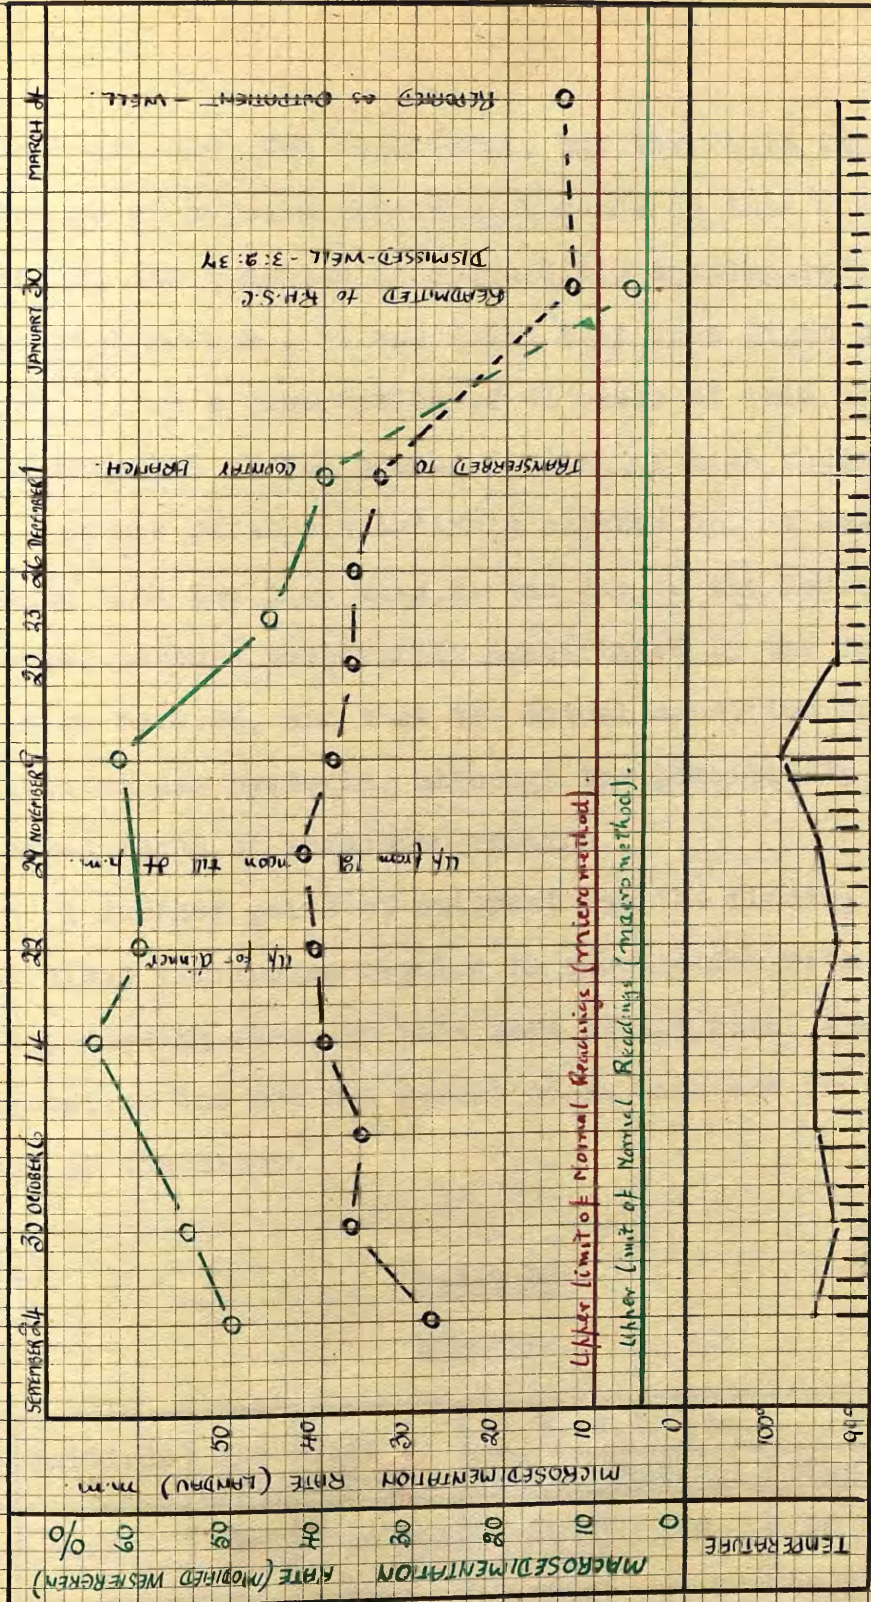 SEPTEMBER 24
30 OCTOBER 6
14
22
29 NOVEMBER 9
20
23
26 DECEMBER 1
JANUARY 30
MARCH 24
REPORTED as OUTPATIENT — WELL.
READMITTED to R.H.S.C
DISMISSED-WELL - 3:2:37
TRANSFERRED TO COUNTRY BRANCH.
Up from 12 noon till 4 p.m.
Up for dinner
Upper Limit of Normal Readings (micromethod).
Upper Limit of Normal Readings (macromethod).
MICROSEDIMENTATION RATE (LANDAU) m.m.
50
40
30
20
10
0
MACROSEDIMENTATION RATE (MODIFIED WESTERGREN)
%
60
50
40
30
20
10
0
TEMPERATURE
100°
99°